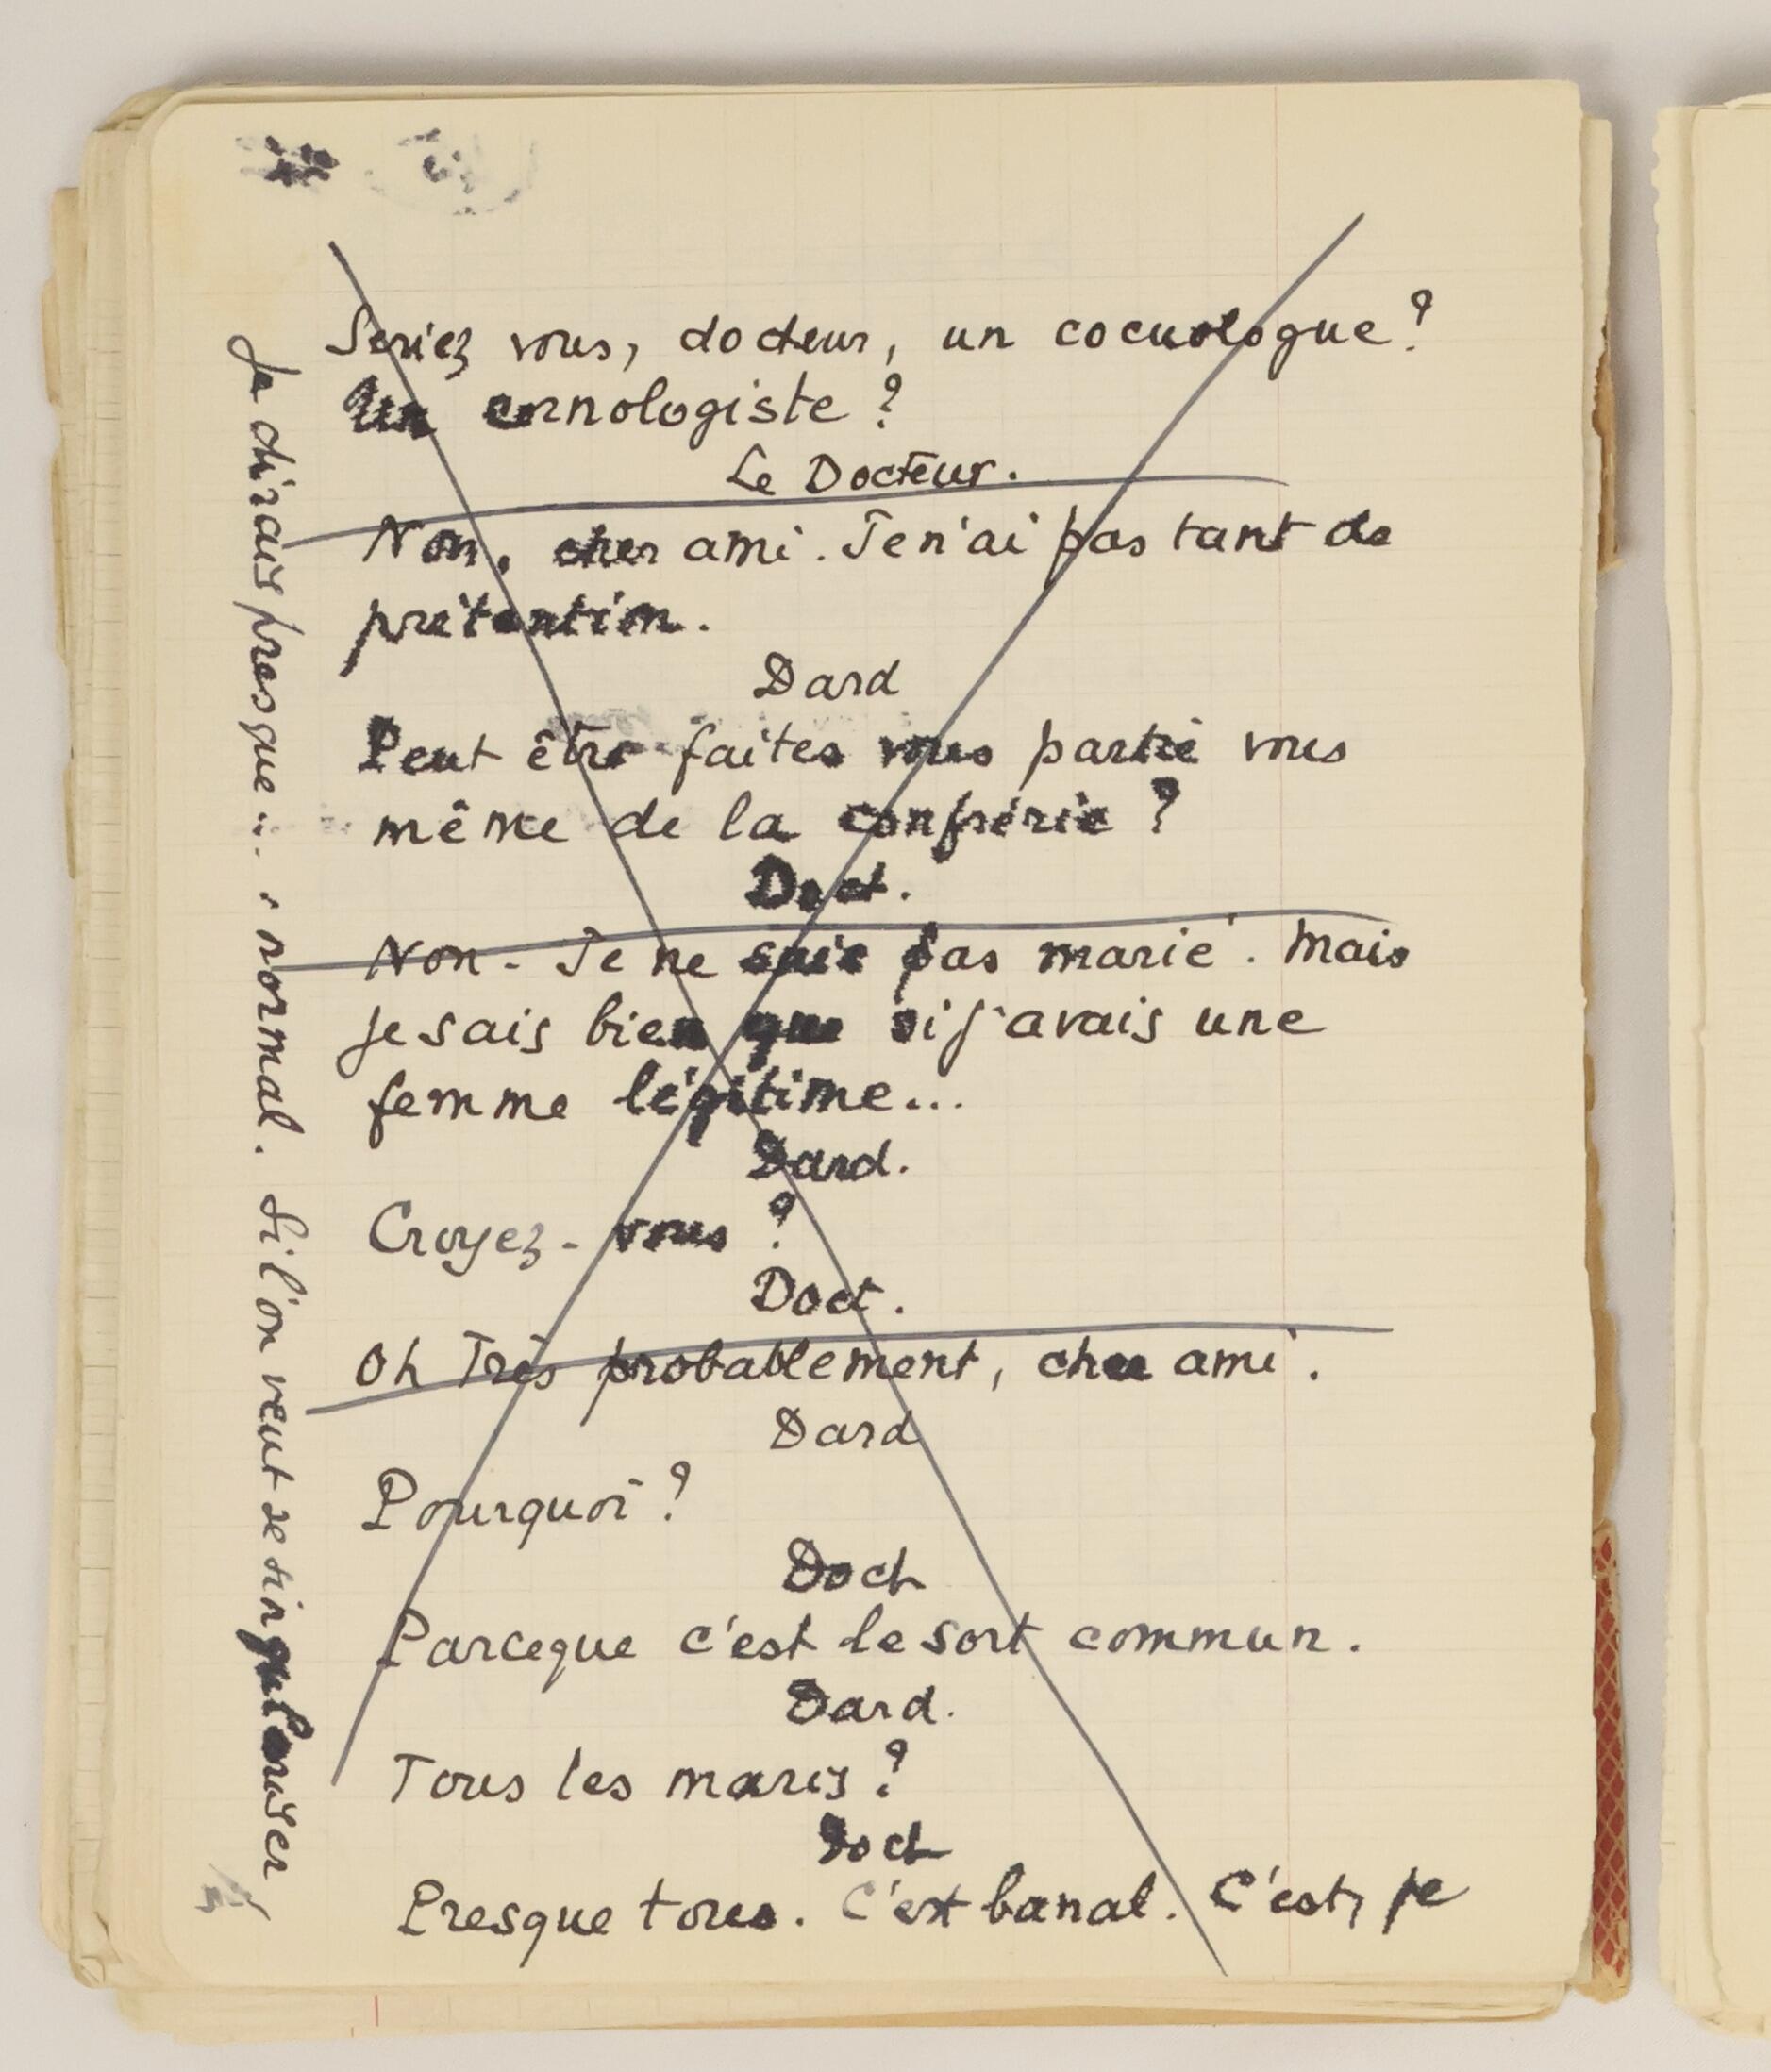 Seriez vous, docteur, un cocuologue?
Un cornologiste?
Le Docteur.
Non, cher ami. Je n'ai pas tant de
prétention.
Dard
Peut être faites vous partie vous
même de la confrérie?
Doct.
Non. Je ne suis pas marié. Mais
je sais bien que si j'avais une
femme légitime...
Dard.
Croyez-vous?
Doct.
Oh Très probablement, cher ami.
Dard
Pourquoi?
Doct
Parceque c'est le sort commun.
Dard.
Tous les maris?
Doct
Presque tous. C'est banal. C'est, je
Je dirais presque... normal. Si l'on veut se singulariser